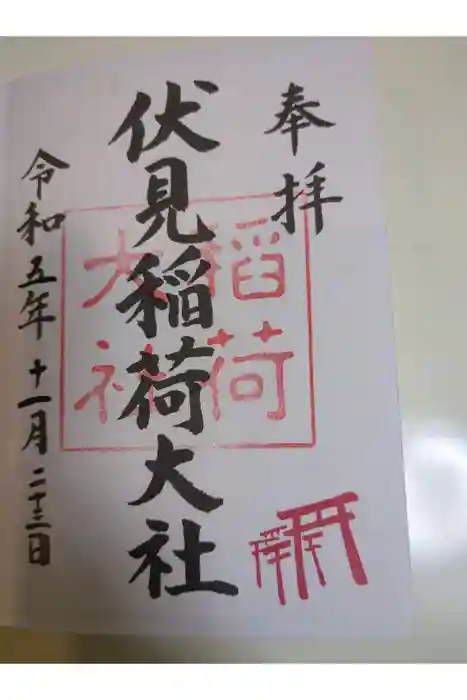 奉拝
伏見稲荷大社
稲荷
大社
令和五年十一月二十三日